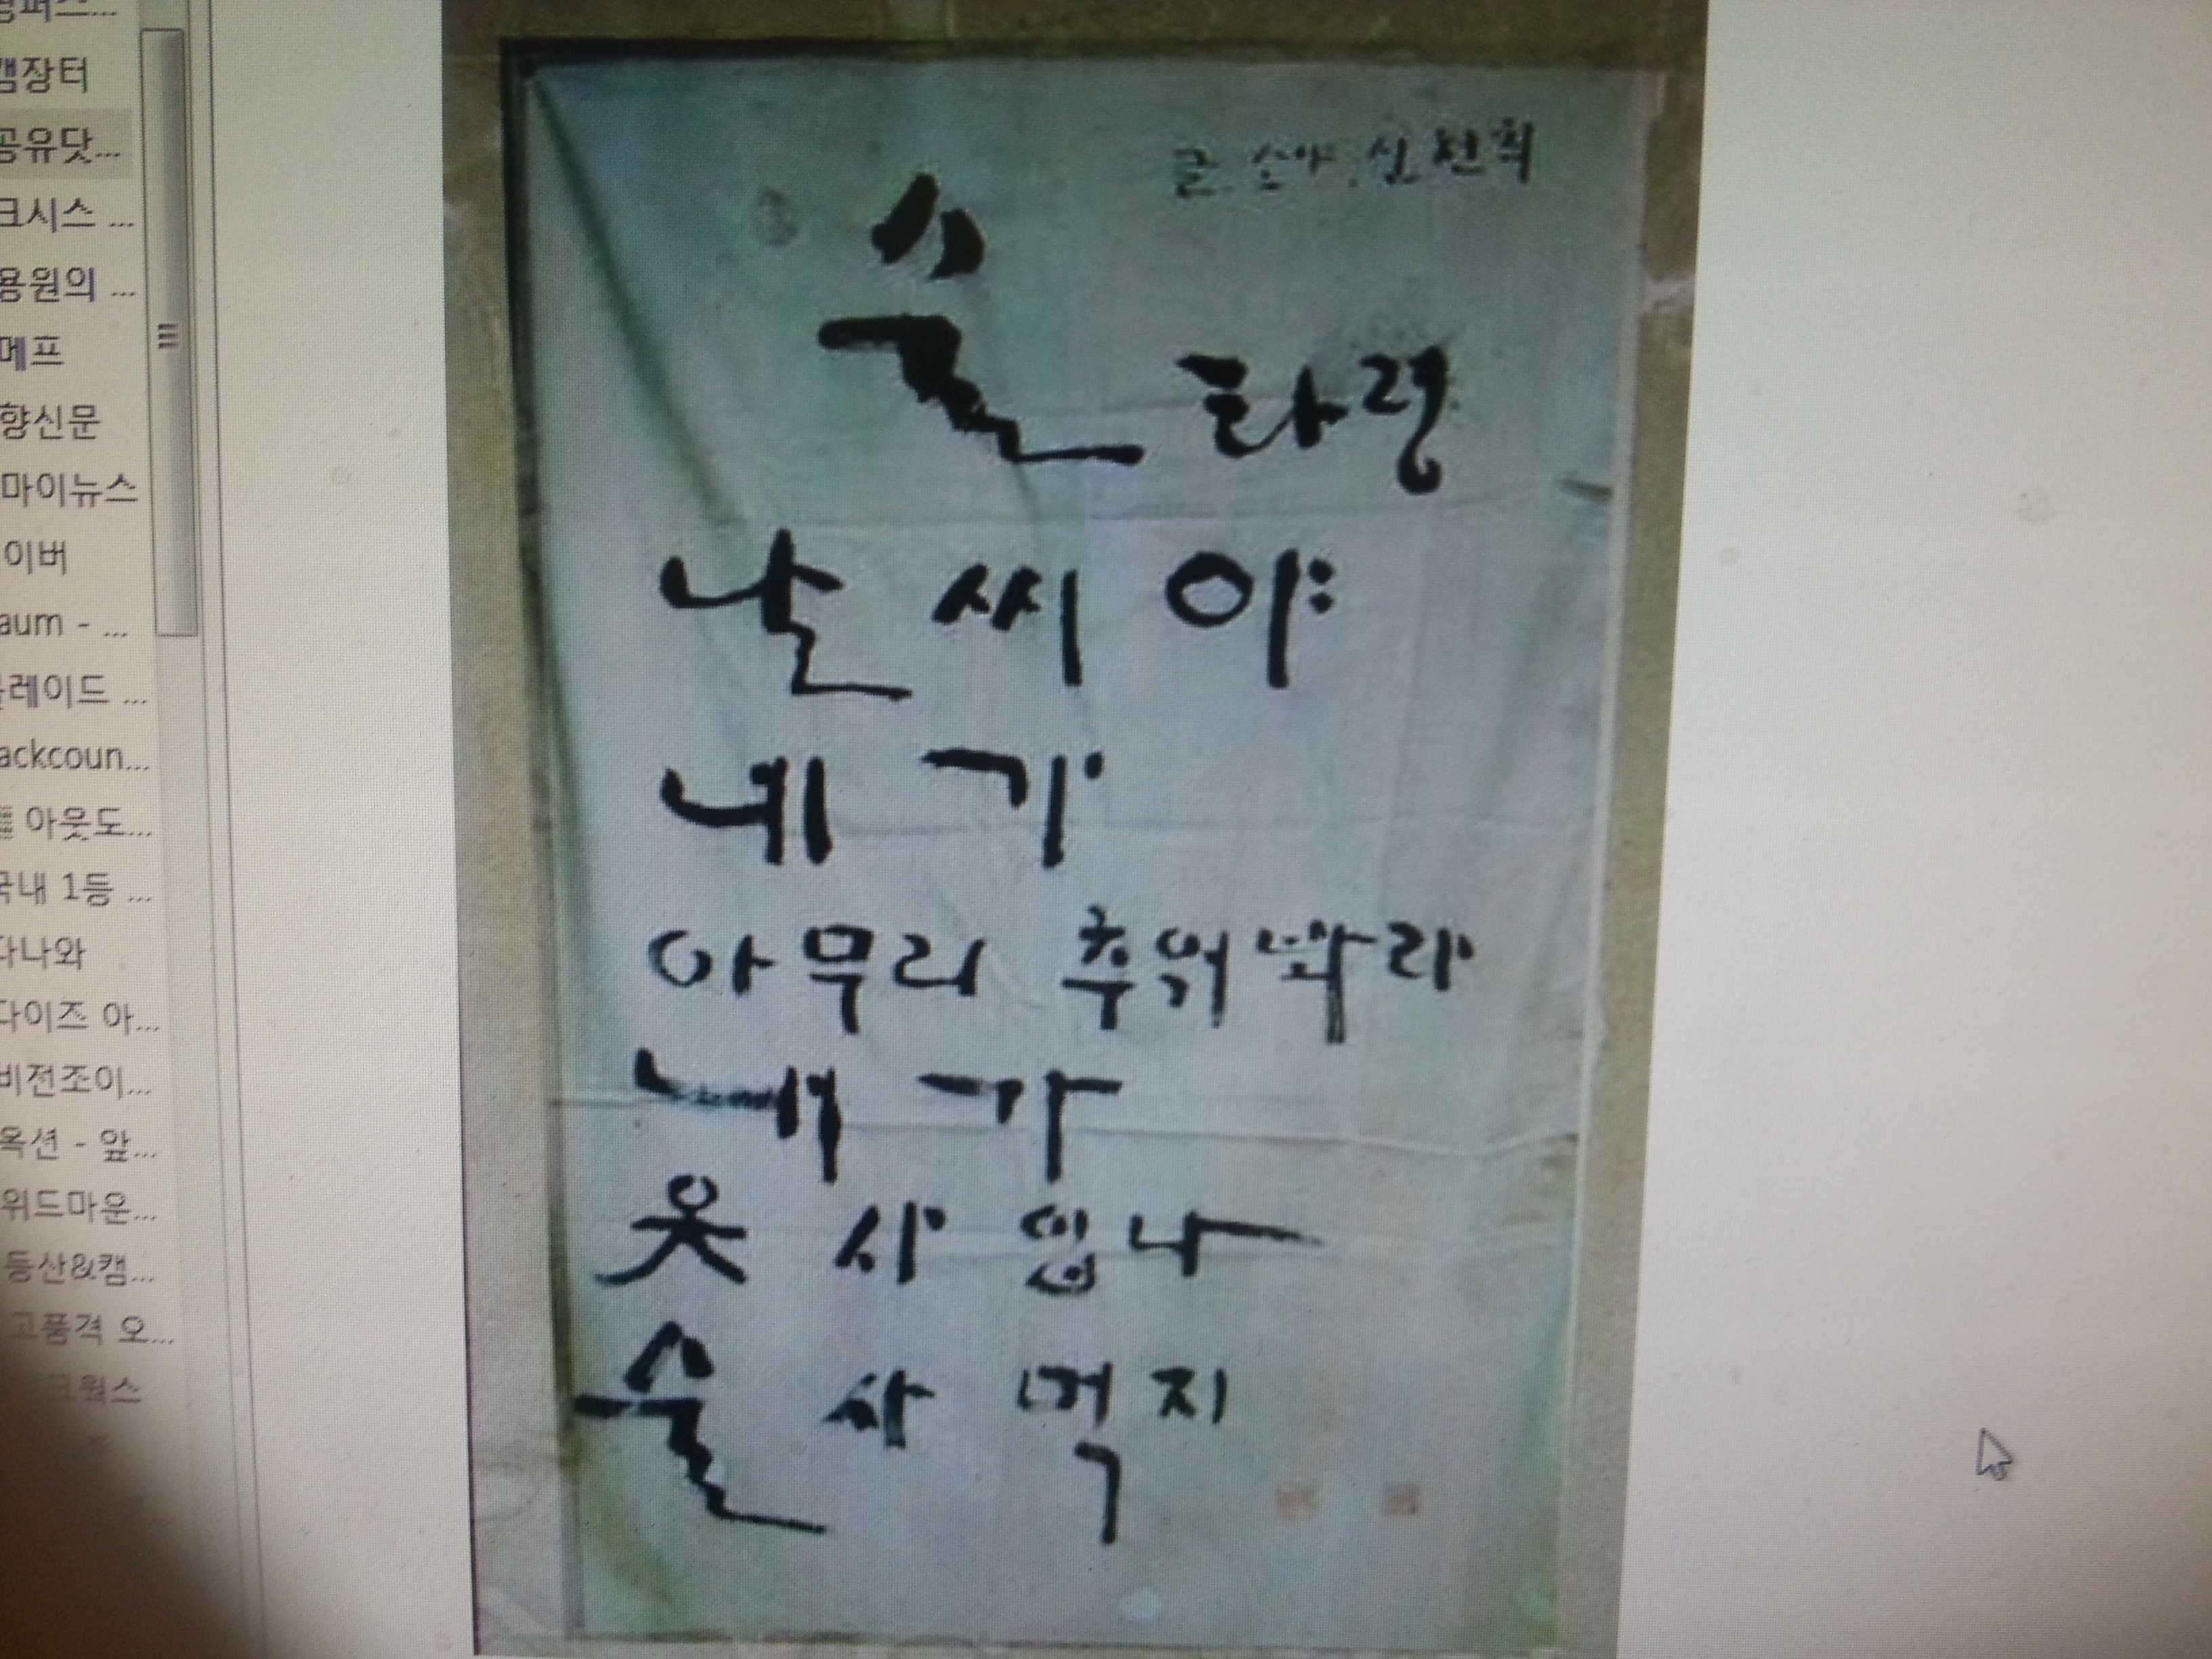 캠장터
공유닷...
크시스 ...
용원의 ...
메프
향신문
마이뉴스
이버
aum - ...
레이드 ...
ackcoun...
아웃도...
국내 1등 ...
다나와
다이즈 아...
비전조이...
옥션 - 앞...
위드마운...
등산&캠...
고품격 오...
글. 소야. 신천희
술 타령
날 씨 야
네 가
아무리 추워봐라
내 가
옷 사 입나
술 사 먹지